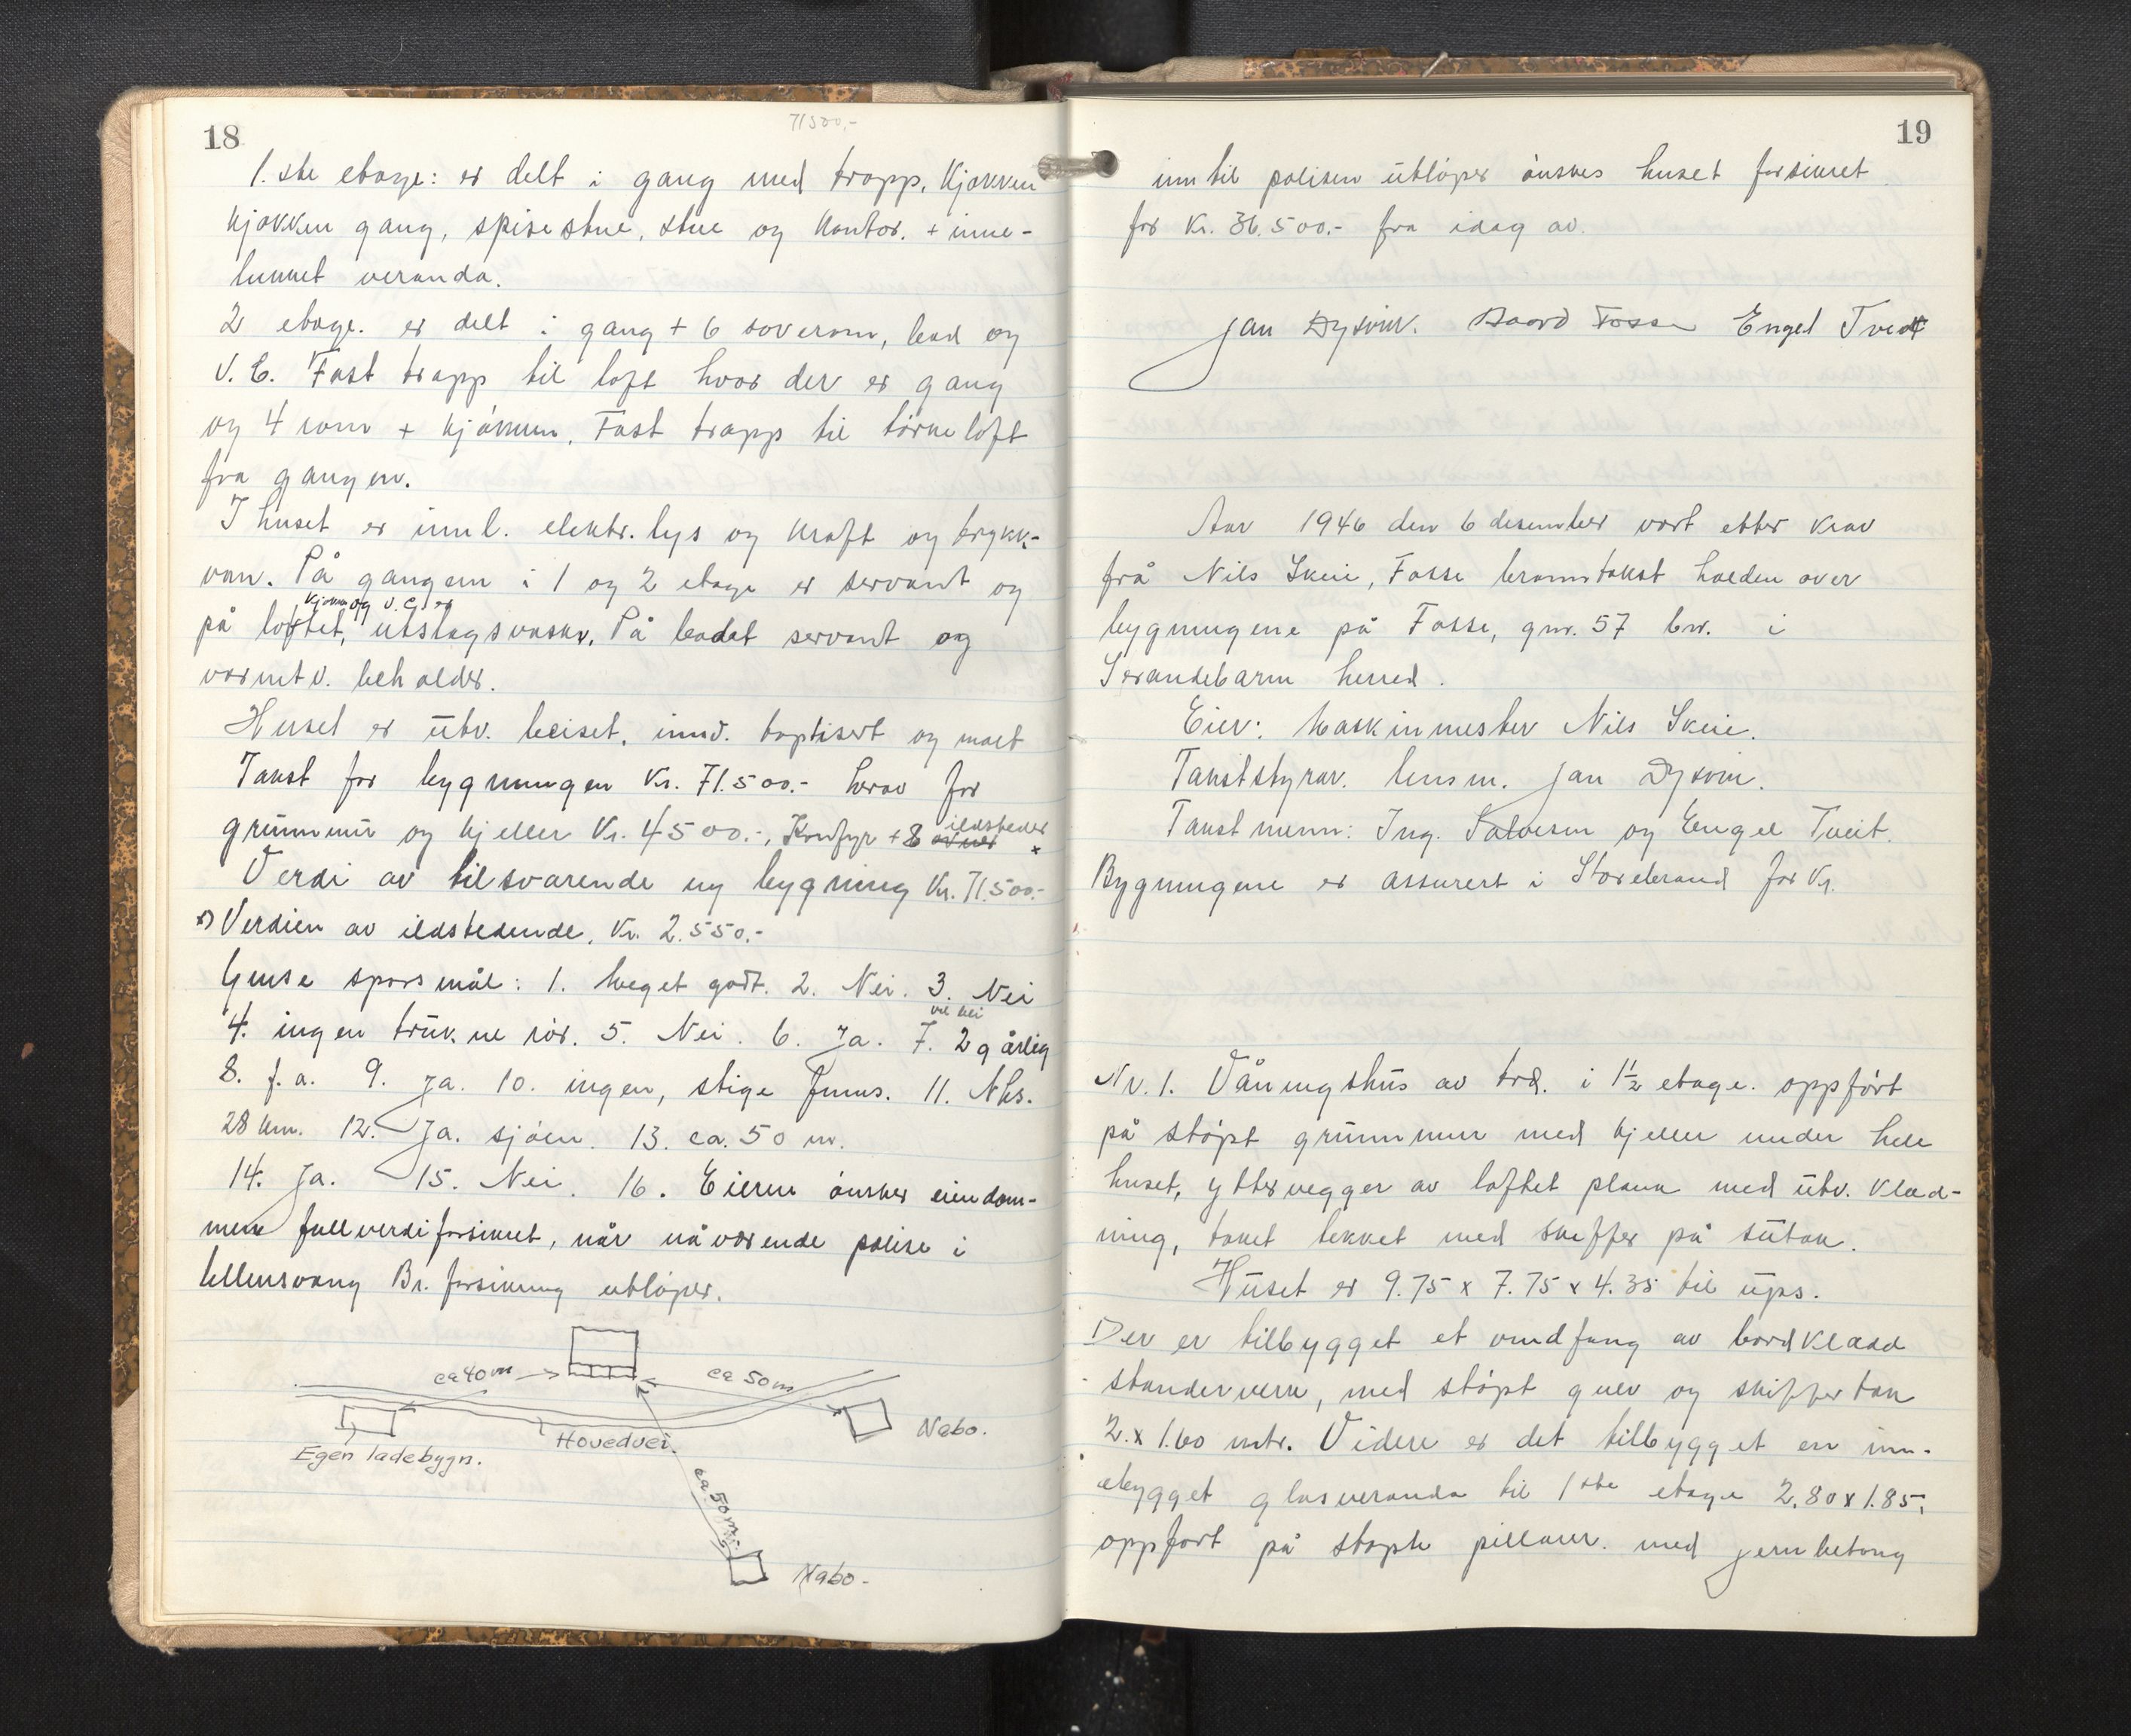 18
71500,-
1. ste etage: er delt i gang med trapp, Kjøkken
kjøkken gang, spisestue, stue og kontor. + inne-
lukket veranda.
2 etage. er delt i gang + 6 soverom, bad og
V. C. Fast trapp til loft hvor der er gang
og 4 rom + kjökken, Fast trapp til törke loft
fra gangen.
I huset er innl. elektr. lys og kraft og trykk-
van. På gangen i 1 og 2 etage er servant og
kjøken og v.c. er
på loftet, utslagsvask. På badet servant og
varmtv. beholder.
Huset er utv. beiset, innv. taptisert og malt
Takst for bygningen Kr. 71.500.- herav for
ildsteder
grunnmur og kjeller Kr. 4500.-, Komfyr + 8 ovner x
Verdi av tilsvarende ny bygning Kr. 71.500.-
x) Verdien av ildstedende, Kr. 2.550.-
Gense spørsmål: 1. Meget godt. 2. Nei. 3. Nei
4. ingen truk. ne rör. 5. Nei. 6. Ja. 7. 2 g årlig
8. f. a. 9. Ja. 10. ingen, stige finns. 11. Nhs.
28 km. 12. Ja. sjöen. 13. ca. 50 m.
14. Ja. 15. Nei. 16. Eieren önsker eiendom-
men fullverdiforsikret, når nåværende polise i
Ullensvang Br. forsikring utlöper.
ca 40 m
ca 50 m
Nabo.
Hovedvei.
Egen ladebygn.
ca. 50 m.
Nabo-
19
inntil polisen utlöper önskes huset forsikret
for Kr. 36.500.- fra idag av.
Jan Dysvik. Baard Fosse Engel Tveit
Aar 1946 den 6 desember vart etter krav
frå Nils Skeie, Fosse branntakst halden over
bygningene på Fosse, gnr. 57 bnr. i
Strandebarm herred.
Eier: Maskinmester Nils Skeie.
Takststyrar. lensm. Jan Dysvik.
Takstmenn: Ing. Salvesen og Engel Tveit.
Bygningene er assurert i Storebrand for Kr.
Nr. 1. Våningshus av tre. i 1½ etage. oppfört
på stöpt grunnmur med kjeller under hele
huset, yttervegger av loftet plank med utv. klæd-
ning, taket tekket med skeffer på sutak.
Huset er 9.75 x 7.75 x 4.35 til ups.
Der er tilbygget et vindfang av bordklædd
standerverk, med stöpt gulv og skiffertak
2. x 1.60 mtr. Videre er det tilbygget en inn-
bygget glasveranda til 1ste etage 2.80 x 1.85,
oppfört på stöpte pillarer. med jernbetong